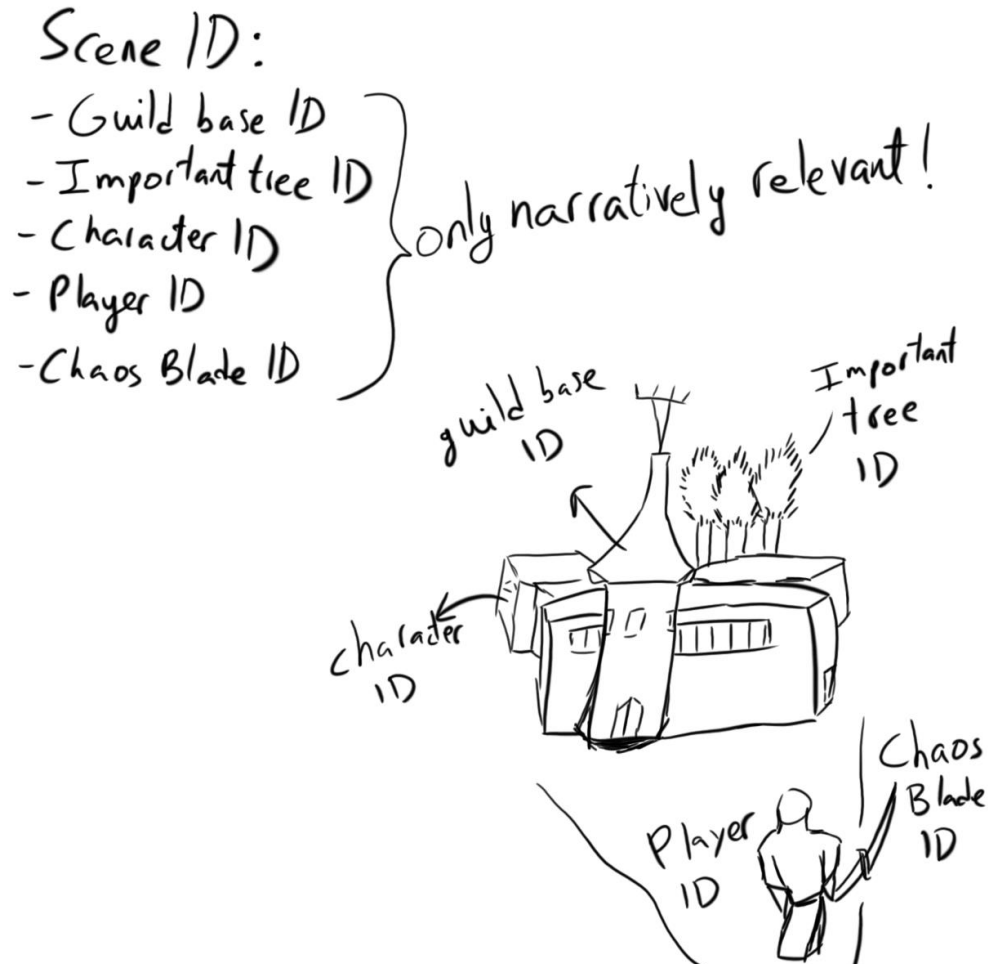 Scene ID:
- Guild base ID
- Important tree ID
- Character ID
- Player ID
- Chaos Blade ID
only narratively relevant!
guild base
ID
Important
tree
ID
character
ID
Chaos
Blade
ID
Player
ID